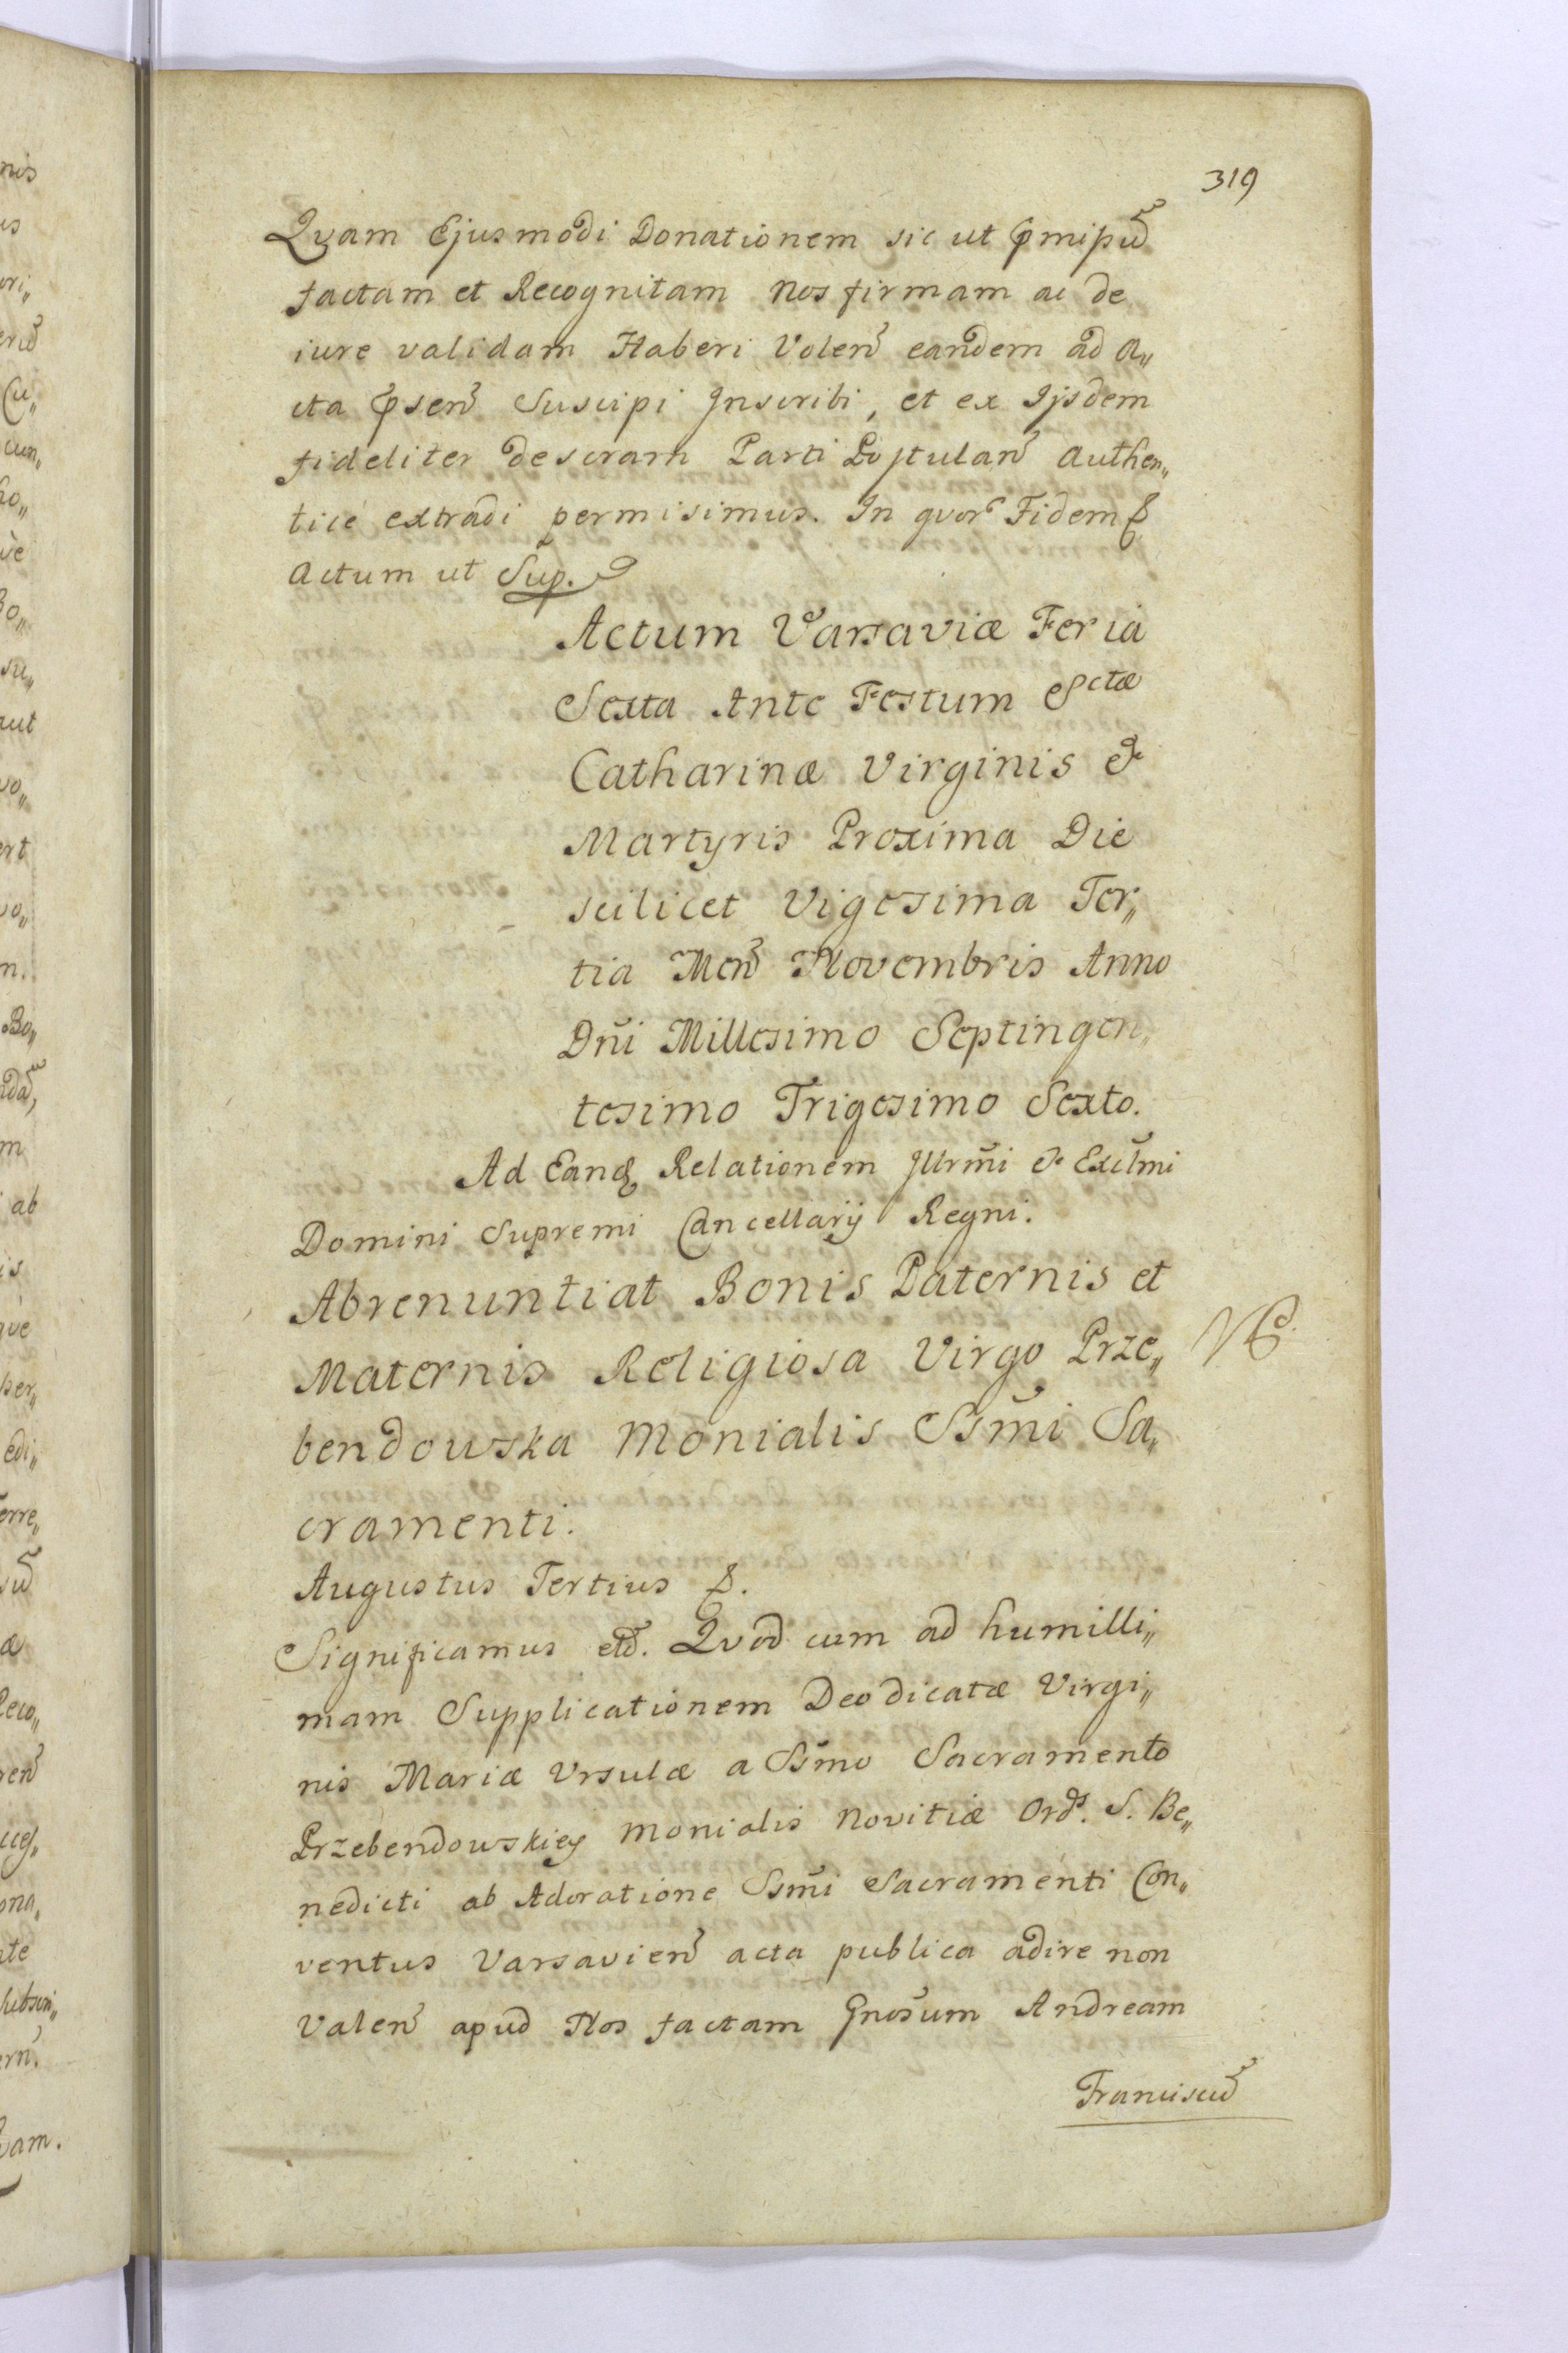 319
Qvam Ejusmodi Donationem sic ut pmipũ
factam et Recognitam Nos firmam ac de
iure validam Haberi Voleñ eandem ad A„
cta pseñ Suscipi Inscribi, et ex Ijsdem
fideliter descram Parti Postulañ Authen„
tice extradi permisimus. In qvor Fidem &
Actum ut Sup.
Actum Varsaviæ Feria
Sexta Ante Festum Sctæ
Catharinæ Virginis &
Martyris Proxima Die
scilicet Vigesima Ter„
tia Meñ Novembris Anno
Dñi Millesimo Septingen„
tesimo Trigesimo Sexto.
Ad Eanq Relationem Illrm̃i & Excl̃mi
Domini Supremi Cancellarij Regni.
Abrenuntiat Bonis Paternis et
Maternis Religiosa Virgo Prze„
bendowska Monialis Ssm̃i Sa„
cramenti.
Augustus Tertius &.
Significamus etc. Qvod cum ad humilli„
mam Supplicationem Deodicatæ Virgi„
nis Mariæ Vrsulæ a Ssm̃o Sacramento
Przebendowskiey Monialis Novitiæ Ords. S. Be„
nedicti ab Adoratione Ssm̃i Sacramenti Con„
ventus Varsavieñ acta publica adire non
Valeñ apud Nos factam Gnosum Andream
Franciscũ